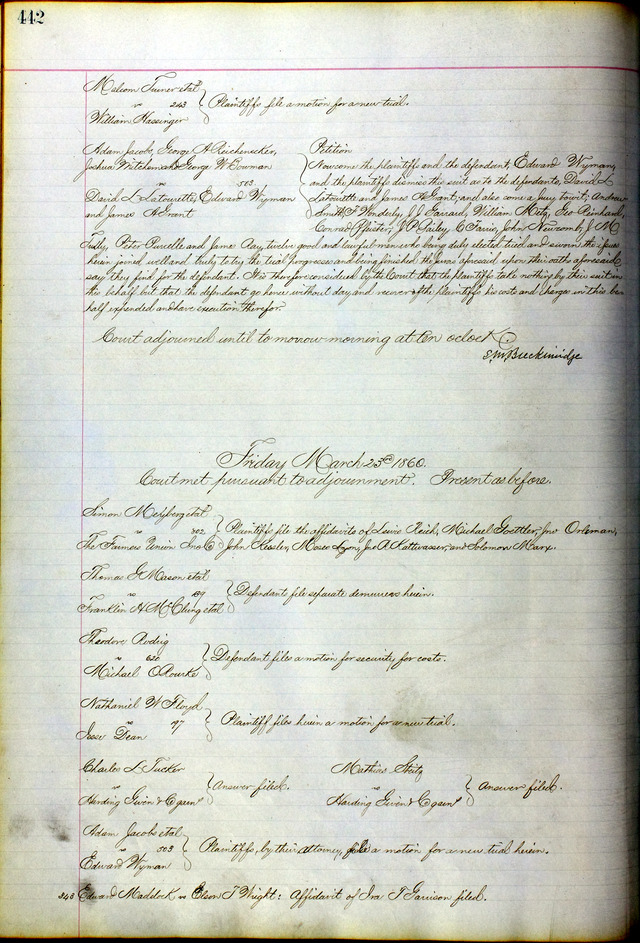 442
Plaintiffs file a motion for a new trial.
vs 243
William Hassinger
Adam Jacobs, George A Reichenecker, Petition
Joshua and George W Bowman Now come the plaintiffs and the defendant, Edward Wyman,
vs 503 and the plaintiffs dismiss this suit as to the defendants, David L
David L Latourette, Edward Wyman Latourette and James A Grant, and also come a jury to wit; Andrew
and James A Grant Smith, William Conrad Pfister, John Newcomb, J M
Tully, Peter Purcelle and James Ray, twelve good and lawful men who being duly elected tried and sworn the issue
herein joined well and truly to try, the trial progresses and being finished the jurors aforesaid upon their oaths aforesaid
say they find for the defendant. It is therefore considered by the Court that the plaintiffs take nothing by their suit in
this behalf but that the defendant go hence without day and recover of the plaintiffs his costs and charges in this be-
half expended and have execution therefor.
Court adjourned until tomorrow morning at ten oclock
S M Breckinridge
Friday March 23rd 1860.
Court met pursuant to adjournment. Present as before.
Simon etal
vs 202 Plaintiffs file the affidavits of Lewis Reich, Michael Jno
The Farmers Union Ins Co John Kessler, Moses Lyon, Jno A and Solomon Marx.
Thomas G Mason etal
vs Defendant files separate demurrers herein.
Franklin A etal
Theodore
vs 620 Defendant files a motion for security for costs.
Michael ORourke
Nathaniel W Floyd
vs 497 Plaintiff files herein a motion for a new trial.
Jesse Dean
Charles L Tucker
vs Answer filed.
Harding Given &
Mathias
vs Answer filed.
Harding Given &
Adam Jacobs etal
vs 503 Plaintiffs, by their Attorney, file a motion for a new trial herein.
Edward Wyman
343 Edward Maddock vs T Wright: Affidavit of Ira T Garrison filed.